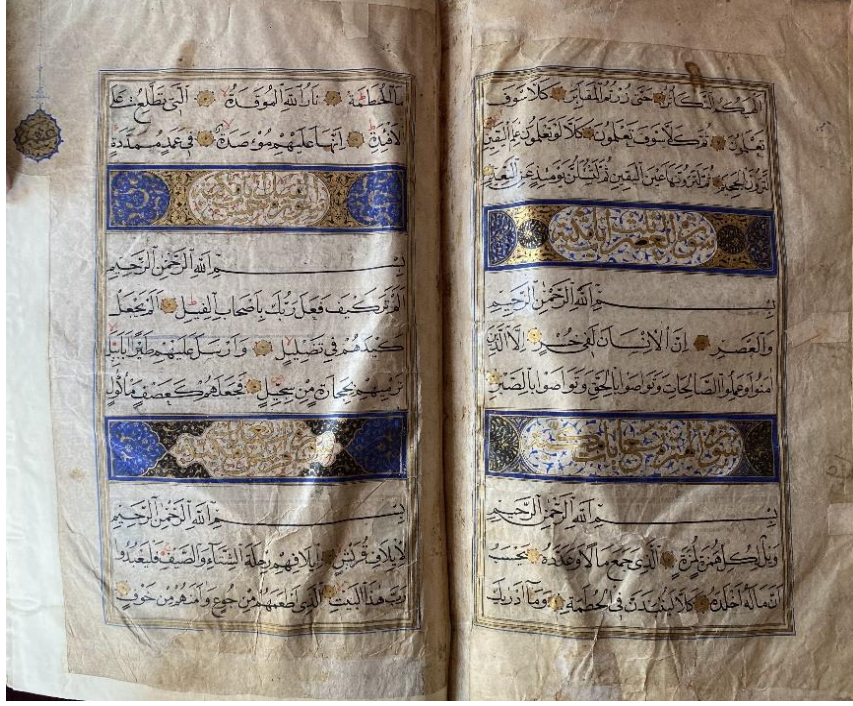 اَلْهٰىكُمُ التَّكَاثُرُ حَتّٰى زُرْتُمُ الْمَقَابِرَ كَلَّا سَوْفَ
تَعْلَمُونَ ثُمَّ كَلَّا سَوْفَ تَعْلَمُونَ كَلَّا لَوْ تَعْلَمُونَ عِلْمَ الْيَقِينِ
لَتَرَوُنَّ الْجَحِيمَ ثُمَّ لَتَرَوُنَّهَا عَيْنَ الْيَقِينِ ثُمَّ لَتُسْأَلُنَّ يَوْمَئِذٍ عَنِ النَّعِيمِ
سورة العصر ثلث آيات مكية
بِسْمِ اللَّهِ الرَّحْمٰنِ الرَّحِيمِ
وَالْعَصْرِ إِنَّ الْإِنْسَانَ لَفِي خُسْرٍ إِلَّا الَّذِينَ
آمَنُوا وَعَمِلُوا الصَّالِحَاتِ وَتَوَاصَوْا بِالْحَقِّ وَتَوَاصَوْا بِالصَّبْرِ
سورة الهمزة تسع آيات مكية
بِسْمِ اللَّهِ الرَّحْمٰنِ الرَّحِيمِ
وَيْلٌ لِكُلِّ هُمَزَةٍ لُمَزَةٍ الَّذِي جَمَعَ مَالًا وَعَدَّدَهُ يَحْسَبُ
أَنَّ مَالَهُ أَخْلَدَهُ كَلَّا لَيُنْبَذَنَّ فِي الْحُطَمَةِ وَمَا أَدْرٰيكَ
مَا الْحُطَمَةُ نَارُ اللَّهِ الْمُوقَدَةُ الَّتِي تَطَّلِعُ عَلَى
الْأَفْئِدَةِ إِنَّهَا عَلَيْهِمْ مُؤْصَدَةٌ فِي عَمَدٍ مُمَدَّدَةٍ
بِسْمِ اللَّهِ الرَّحْمٰنِ الرَّحِيمِ
أَلَمْ تَرَ كَيْفَ فَعَلَ رَبُّكَ بِأَصْحَابِ الْفِيلِ أَلَمْ يَجْعَلْ
كَيْدَهُمْ فِي تَضْلِيلٍ وَأَرْسَلَ عَلَيْهِمْ طَيْرًا أَبَابِيلَ
تَرْمِيهِمْ بِحِجَارَةٍ مِنْ سِجِّيلٍ فَجَعَلَهُمْ كَعَصْفٍ مَأْكُولٍ
بِسْمِ اللَّهِ الرَّحْمٰنِ الرَّحِيمِ
لِإِيلَافِ قُرَيْشٍ إِيلَافِهِمْ رِحْلَةَ الشِّتَاءِ وَالصَّيْفِ فَلْيَعْبُدُوا
رَبَّ هٰذَا الْبَيْتِ الَّذِي أَطْعَمَهُمْ مِنْ جُوعٍ وَآمَنَهُمْ مِنْ خَوْفٍ